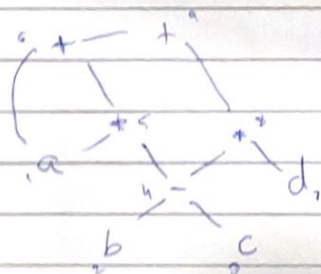 6 + + 9
* 5 *
1 a 4 - d 7
2 b c